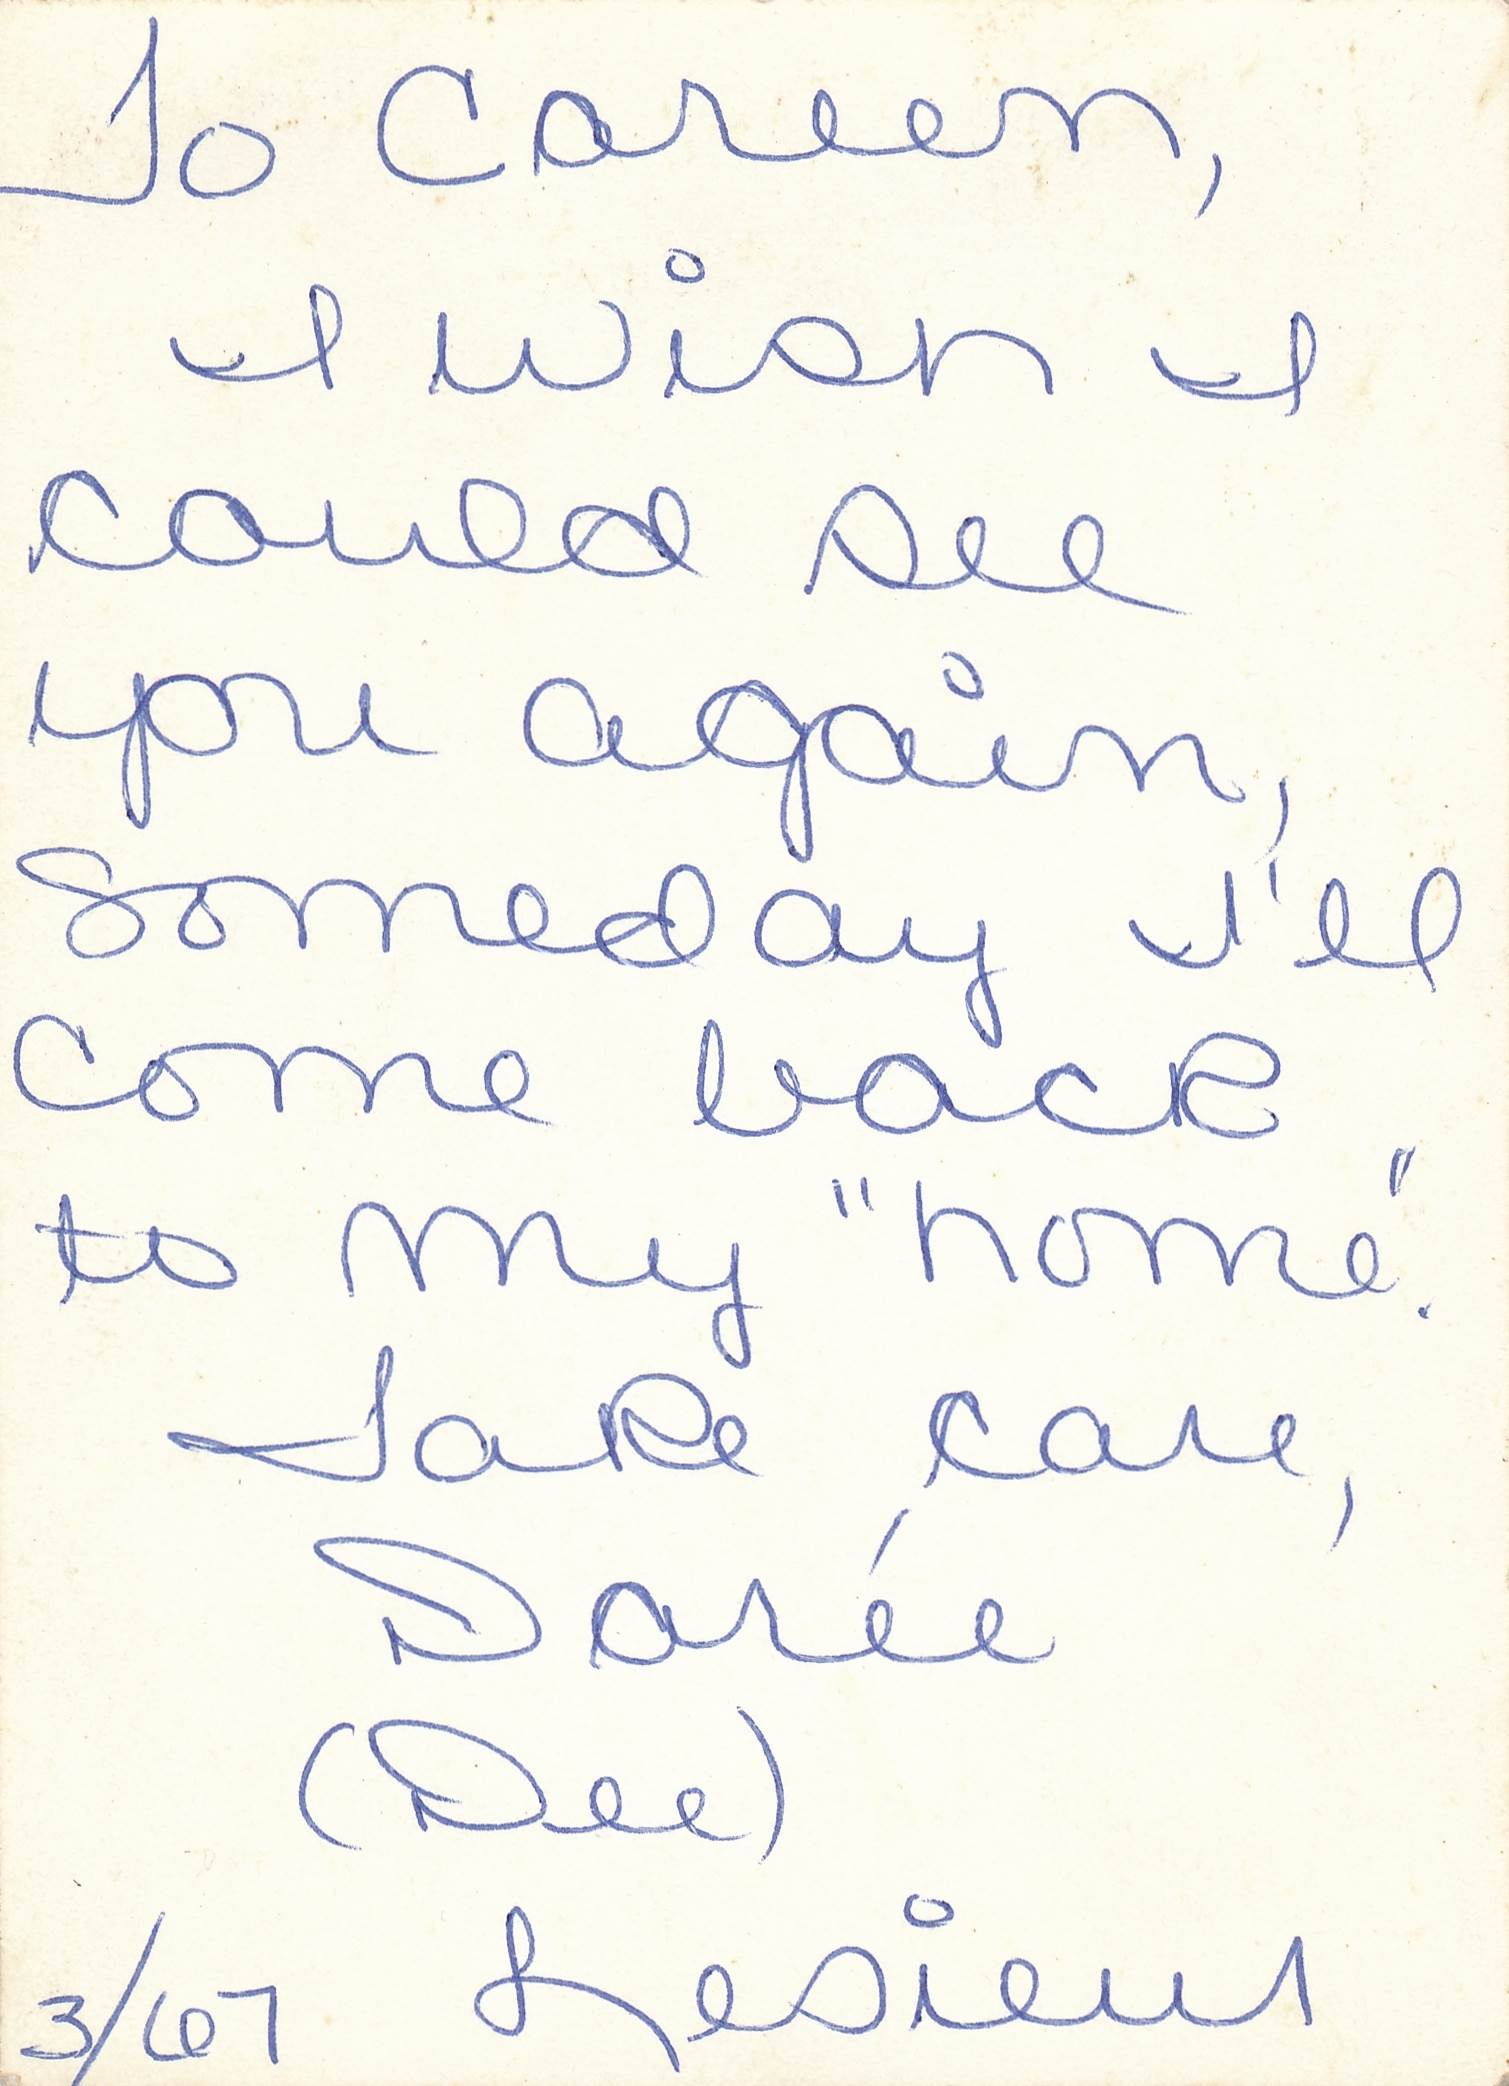 To Careen,
I wish I
could see
you again,
Someday I'll
Come back
to my "home".
Take care,
Darée
(Dee)
3/67 Lesieur